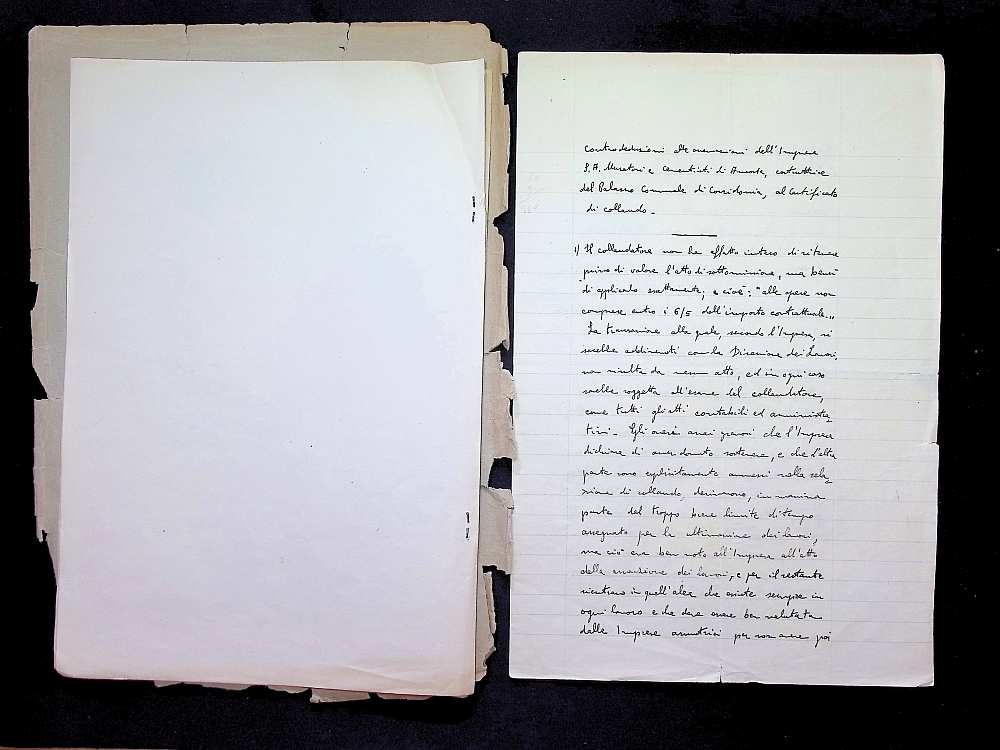 Controdeduzioni alle osservazioni dell'Impresa
S. A. Muratori e Cementisti di Ancona, costruttrice
del Palazzo Comunale di Corridonia, al Certificato
di collaudo.
1) Il collaudatore non ha affatto inteso di ritenere
privo di valore l'atto di sottomissione, ma bensì
di applicarlo esattamente; e cioè: "alle opere non
comprese entro i 6/5 dell'importo contrattuale.„
La transazione alla quale, secondo l'Impresa, si
sarebbe addivenuti con la Direzione dei Lavori,
non risulta da nessun atto, ed in ogni caso
sarebbe soggetta all'esame del collaudatore,
come tutti gli atti contabili ed amministra
tivi. Gli oneri assai gravosi che l'Impresa
dichiara di aver dovuto sostenere, e che d'altra
parte sono esplicitamente ammessi nella rela
zione di collaudo, derivarono, in massima
parte dal troppo breve limite di tempo
assegnato per la ultimazione dei lavori,
ma ciò era ben noto all'Impresa all'atto
della assunzione dei lavori, e per il restante
rientrano in quell'alea che esiste sempre in
ogni lavoro e che deve essere ben valutata
dalle Imprese assuntrici per non avere poi